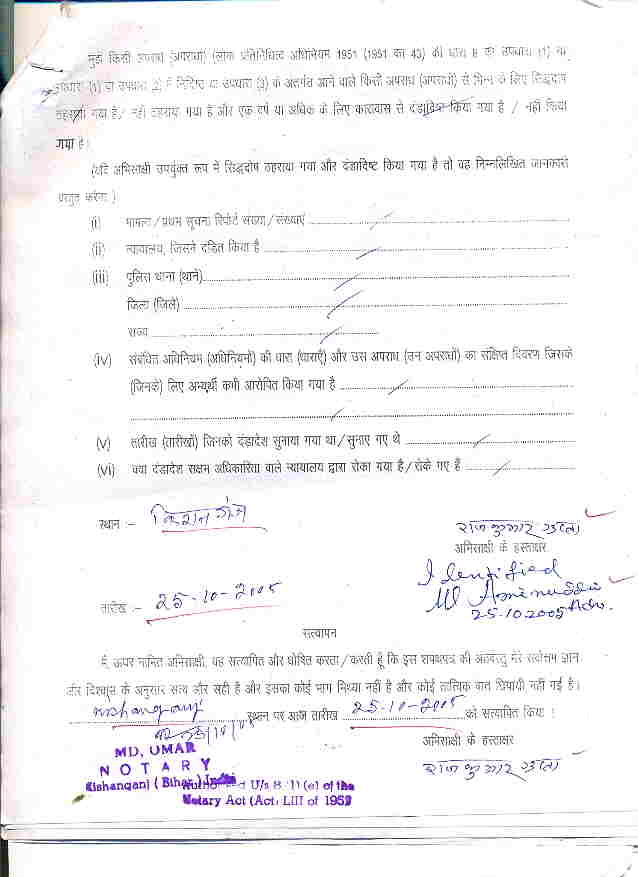 मुझे किसी अपराध (अपराधों) (लोक प्रतिनिधित्व अधिनियम 1951 (1951 का 43) की धारा 8 की उपधारा (1) या
उपधारा (1) या उपधारा 2) में निर्दिष्ट या उपधारा (3) के अंतर्गत आने वाले किसी अपराध (अपराधों) से भिन्न के लिए सिद्धदोष
ठहराया गया है/ नहीं ठहराया गया है और एक वर्ष या अधिक के लिए कारावास से दंडादिष्ट किया गया है / नहीं किया
गया है।
(यदि अभिसाक्षी उपर्युक्त रूप में सिद्धदोष ठहराया गया और दंडादिष्ट किया गया है तो वह निम्नलिखित जानकारी
प्रस्तुत करेगा )
(i) मामला/प्रथम सूचना रिपोर्ट संख्या/संख्याएं
(ii) न्यायालय, जिसने दंडित किया है
(iii) पुलिस थाना (थाने)
जिला (जिले)
राज्य
(iv) संबंधित अधिनियम (अधिनियमों) की धारा (धाराएँ) और उस अपराध (उन अपराधों) का संक्षिप्त विवरण जिसके
(जिनके) लिए अभ्यर्थी कभी आरोपित किया गया है
(v) तारीख (तारीखों) जिनको दंडादेश सुनाया गया था/सुनाए गए थे
(vi) क्या दंडादेश सक्षम अधिकारिता वाले न्यायालय द्वारा रोका गया है/रोके गए हैं
स्थान :- किशनगंज
राज कुमार गुप्ता
अभिसाक्षी के हस्ताक्षर
Identified
Md Asimuddin
25.10.2005 Adv.
तारीख :- 25-10-2005
सत्यापन
मैं, ऊपर नामित अभिसाक्षी, यह सत्यापित और घोषित करता/करती हूँ कि इस शपथपत्र की अंतर्वस्तु मेरे सर्वोत्तम ज्ञान
और विश्वास के अनुसार सत्य और सही है और इसका कोई भाग मिथ्या नहीं है और कोई तात्विक बात छिपायी नहीं गई है।
Kishanganj स्थान पर आज तारीख 25-10-2005 को सत्यापित किया।
अभिसाक्षी के हस्ताक्षर
राज कुमार गुप्ता
MD. UMAR
NOTARY
Kishanganj (Bihar) India
U/s 8 (1) (e) of the
Notary Act (Act. LIII of 1952